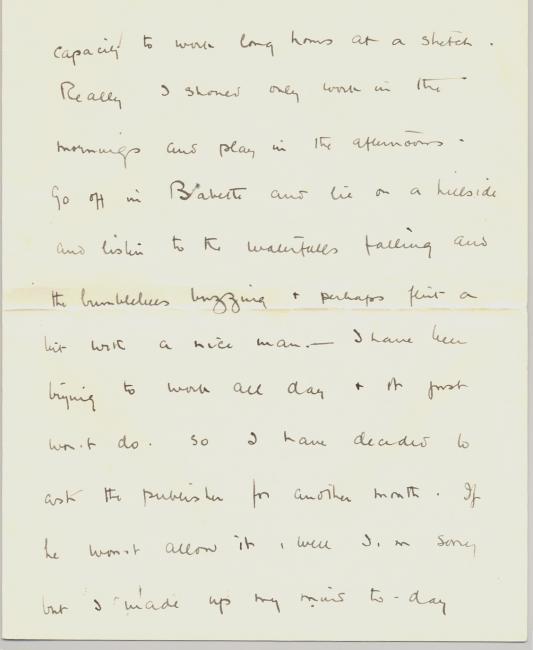 capacity to work long hours at a stretch.
Really I should only work in the
mornings and play in the afternoons.
Go off in Babette and lie on a hillside
and listen to the waterfalls falling and
the bumblebees buzzing & perhaps flirt a
bit with a nice man. — I have been
trying to work all day & it just
won't do. So I have decided to
ask the publisher for another month. If
he won't allow it, well I'm sorry
but I made up my mind to-day